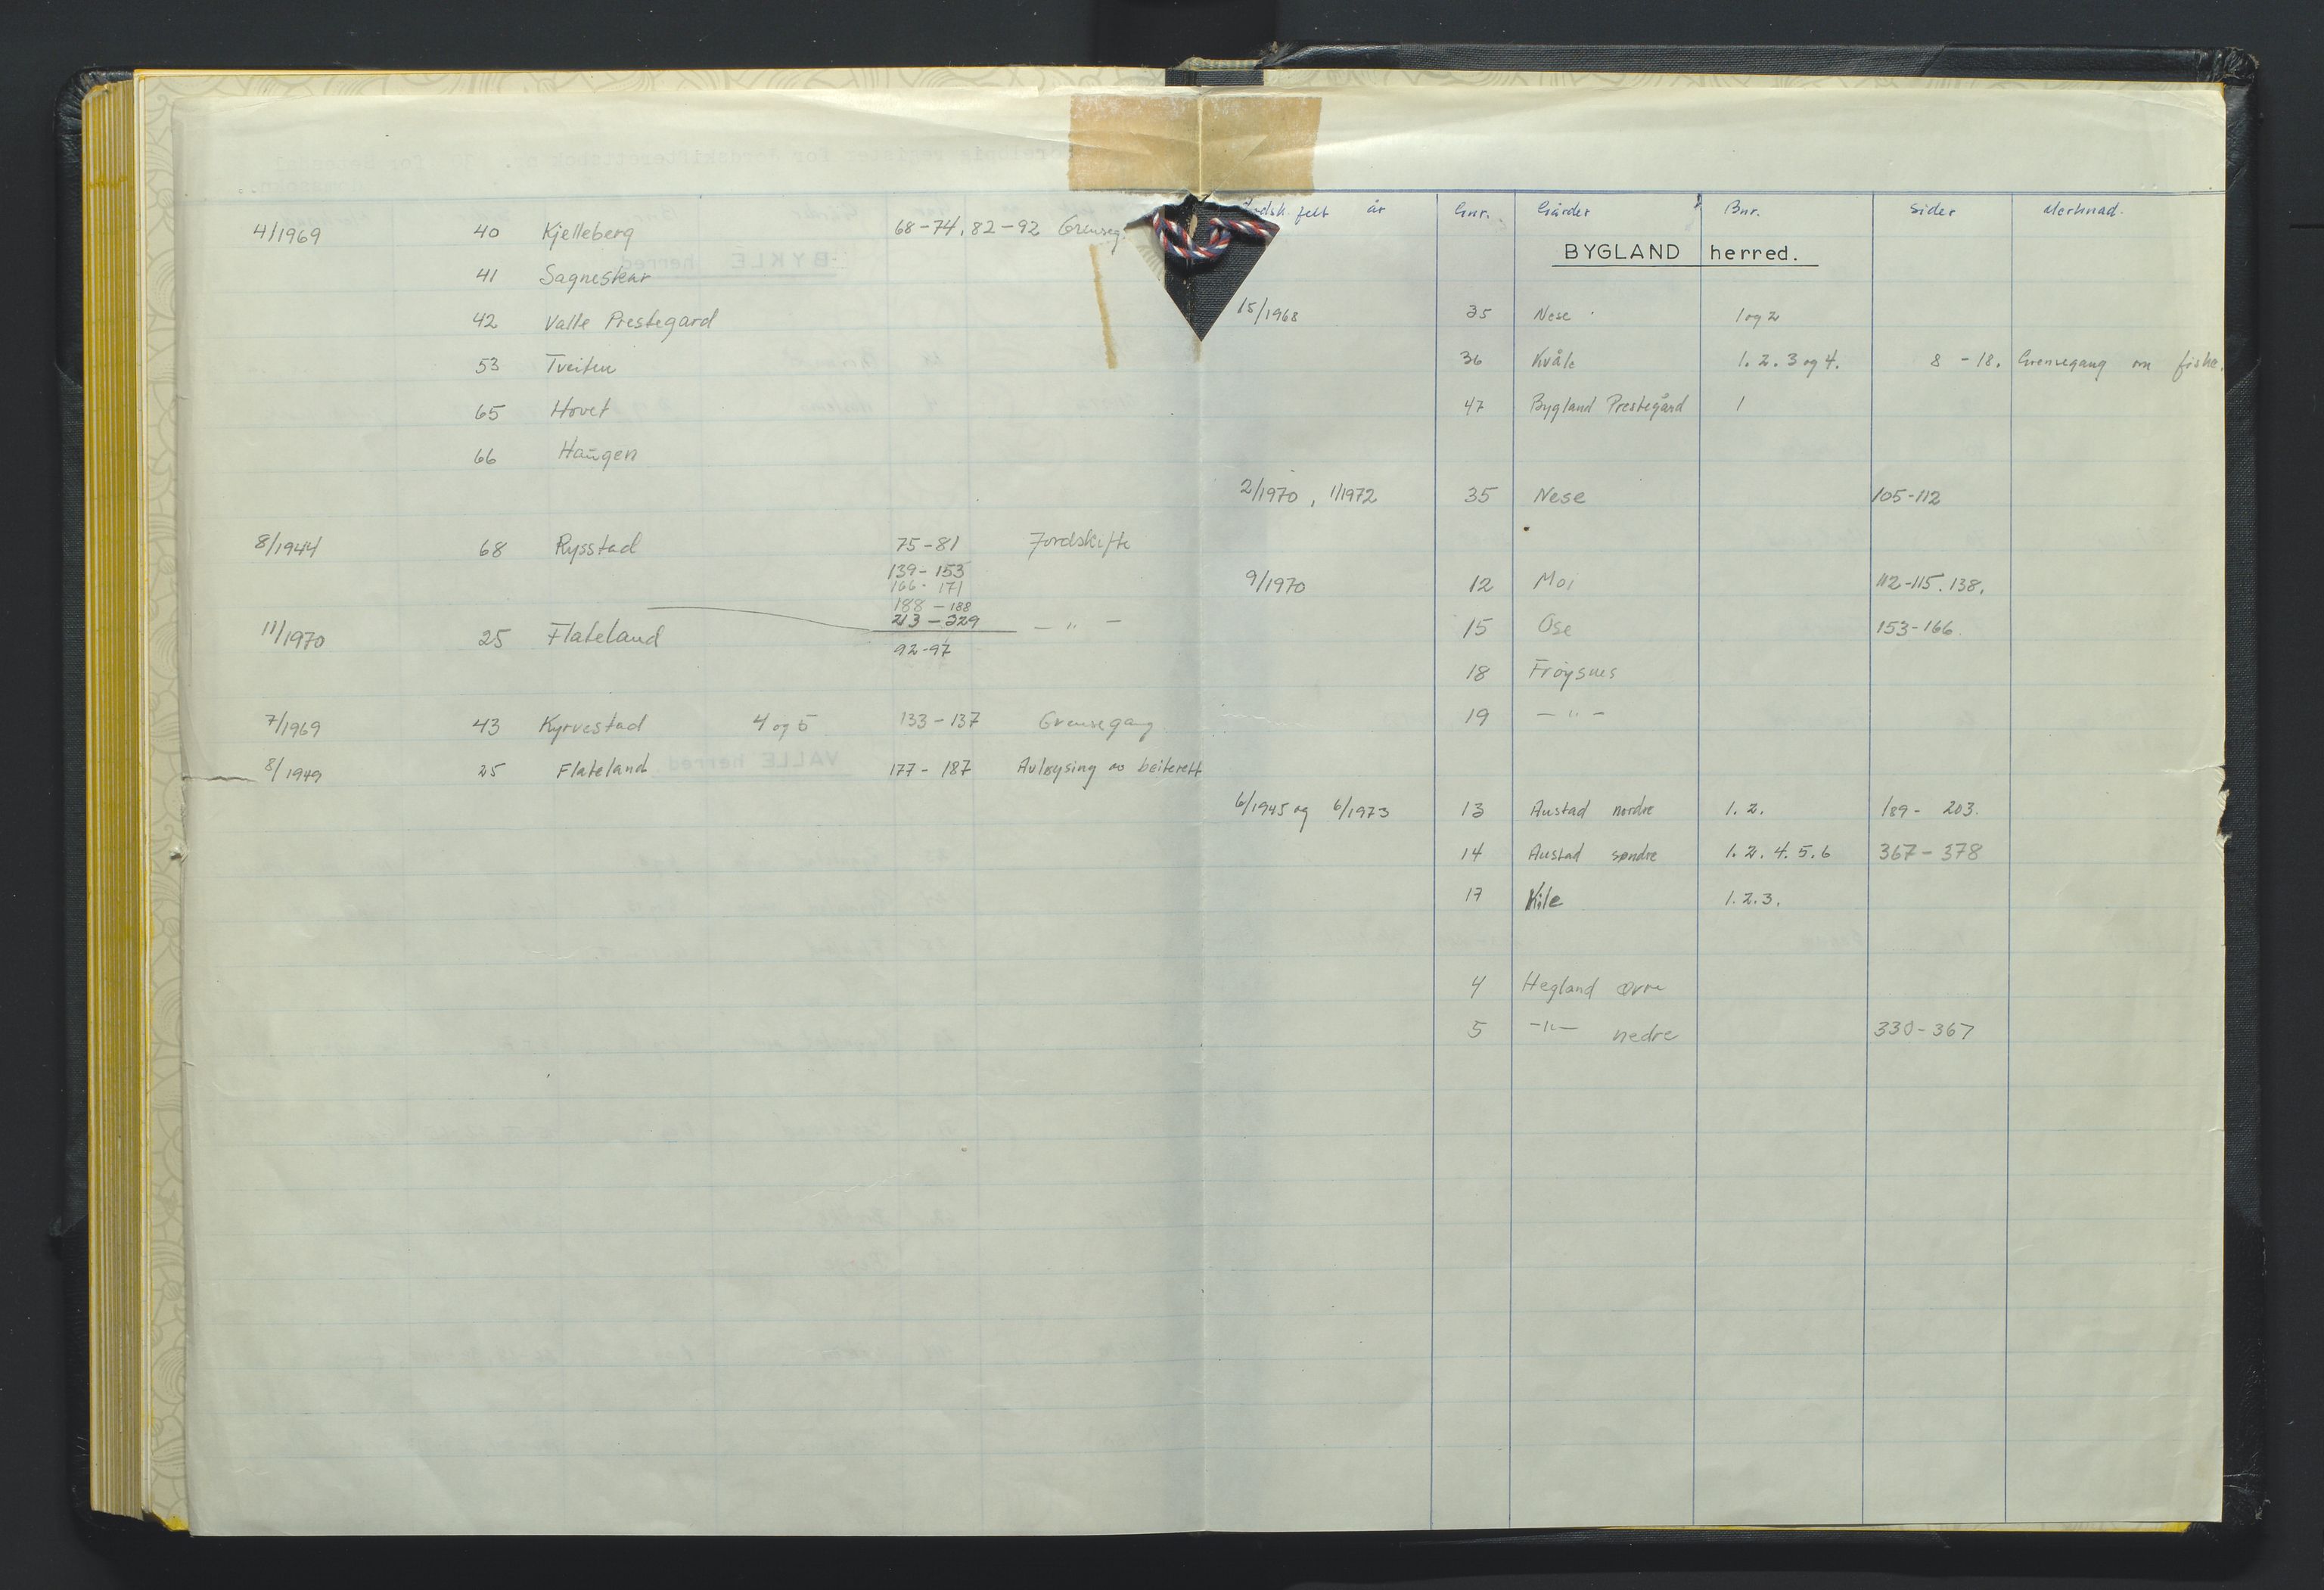 4/1969 40 Kjelleberg 68-74, 82-92 Grenseg.
41 Sagneskar
42 Valle Prestegard
53 Tveiten
65 Hovet
66 Haugen
8/1944 68 Rysstad 75-81 Jordskifte
139-153
166-171
188-188
213-329
11/1970 25 Flateland — " —
92-97
7/1969 43 Kyrvestad 4 og 5 133-137 Grensegang
8/1949 25 Flateland 177-187 Avløysing av beiterett
Jordsk. felt år Gnr. Gårder Bnr. Sider Merknad.
BYGLAND herred.
15/1968 35 Nese 1 og 2
36 Kvåle 1. 2. 3 og 4. 8 - 18. Grensegang om fiske.
47 Bygland Prestegård 1
2/1970, 1/1972 35 Nese 105-112
9/1970 12 Moi 112-115. 138.
15 Ose 153-166.
18 Frøysnes
19 — " —
6/1945 og 6/1973 13 Austad nordre 1. 2. 189- 203.
14 Austad søndre 1. 2. 4. 5. 6 367-378
17 Kile 1. 2. 3.
4 Hegland øvre
5 —"— nedre 330-367